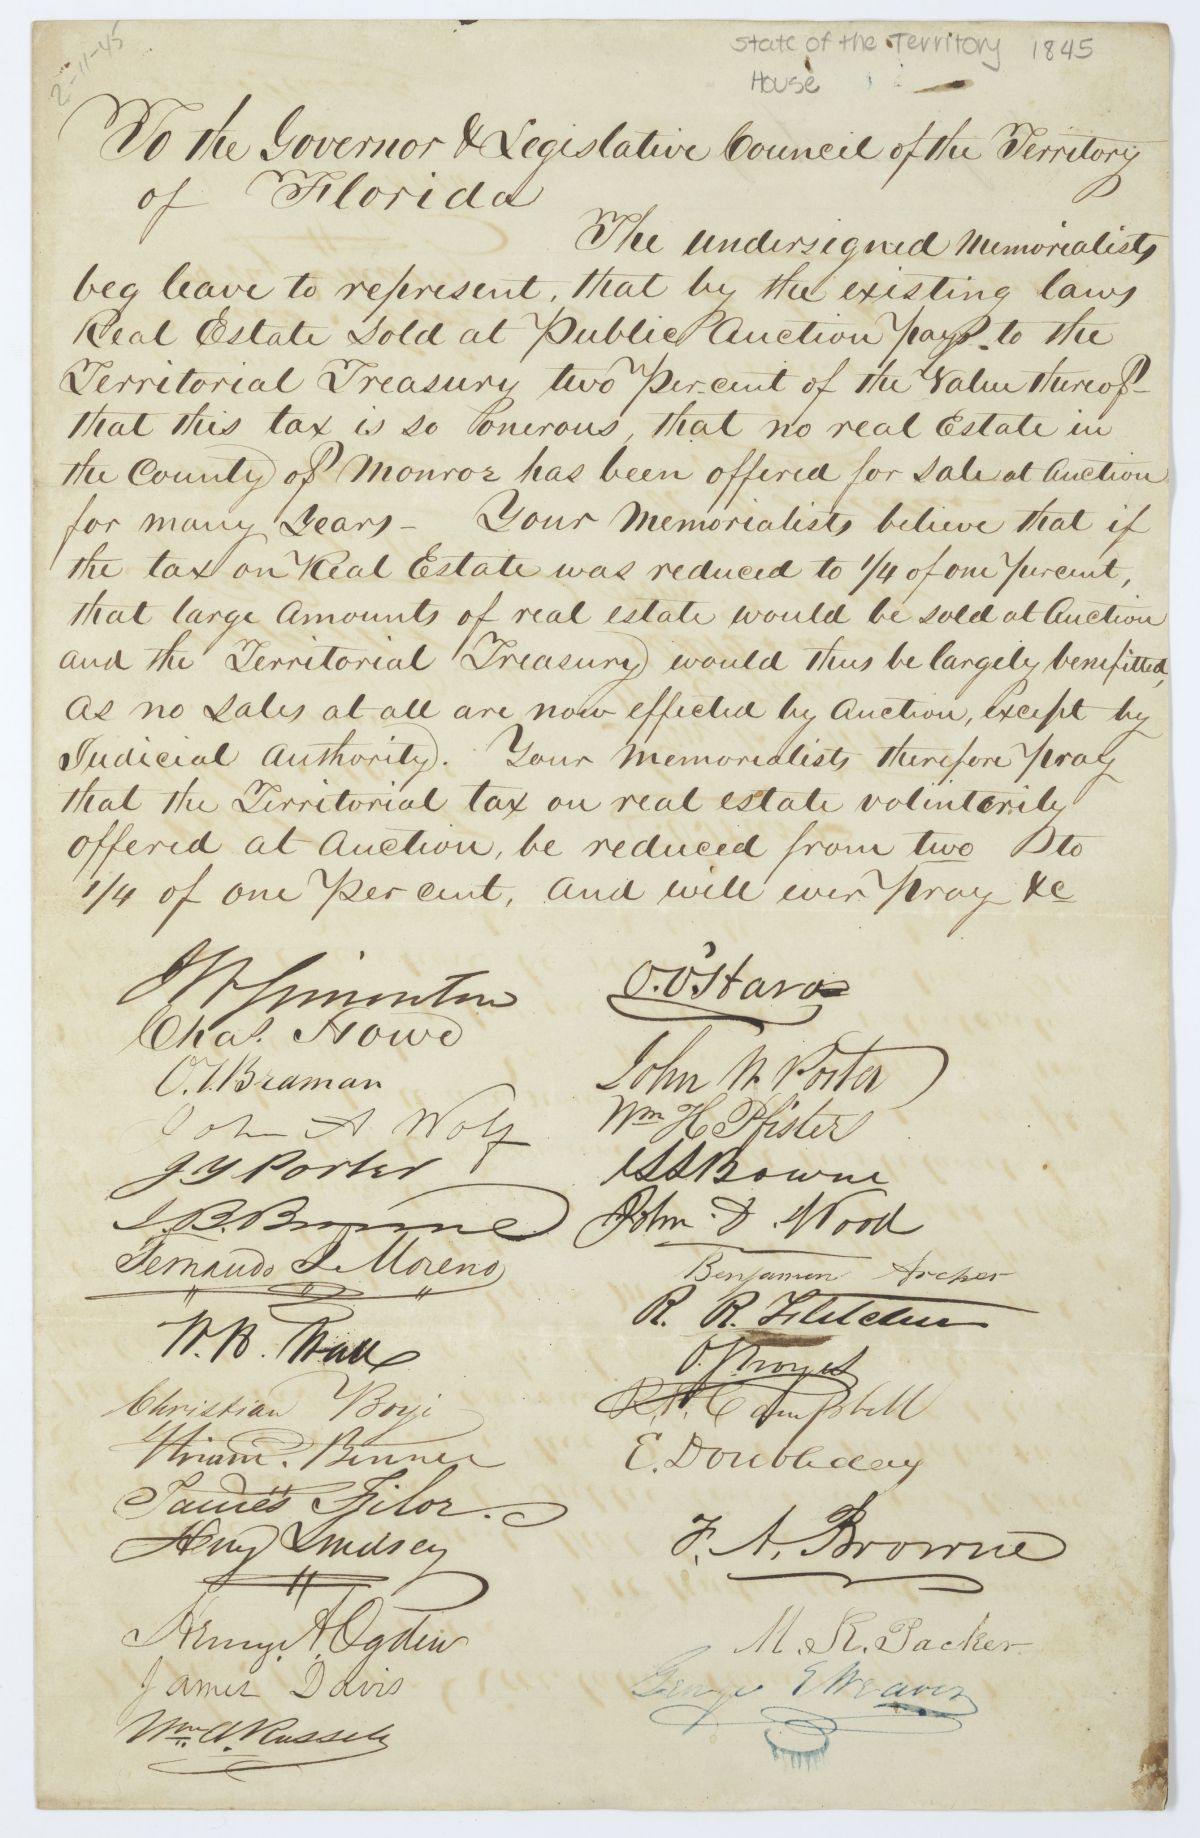 2-11-45
State of the Territory 1845
House
To the Governor & Legislative Council of the Territory
of Florida
The undersigned Memorialists
beg leave to represent, that by the existing laws
Real Estate Sold at Public Auction pays to the
Territorial Treasury two per cent of the Value thereof-
that this tax is so onerous, that no real Estate in
the County of Monroe has been offered for Sale at Auction
for many Years - Your Memorialists believe that if
the tax on Real Estate was reduced to 1/4 of one per cent,
that large amounts of real estate would be sold at Auction
and the Territorial Treasury would thus be largely benefitted,
as no sales at all are now effected by Auction, except by
Judicial Authority. Your Memorialists therefore pray
that the Territorial tax on real estate voluntarily
offered at Auction, be reduced from two to
1/4 of one per cent, and will ever pray &c
J W Simonton
Chas. Howe
O. T. Braman
John A Wolf
J Y Porter
J. B. Browne
Fernando J. Moreno
W. W. Wall
Christian Boye
Hiram. Benner
James Filor.
Henry Lindsey
Henry. A. Ogden
James Davis
Wm A. Russell
O. O'Hara
John W. Porter
Wm H Pfister
Browne
John. Wood
Benjamin Archer
R. R. Fletcher
Campbell
E. Doubleday
F. A. Browne
M. R. Packer
George E Weaver